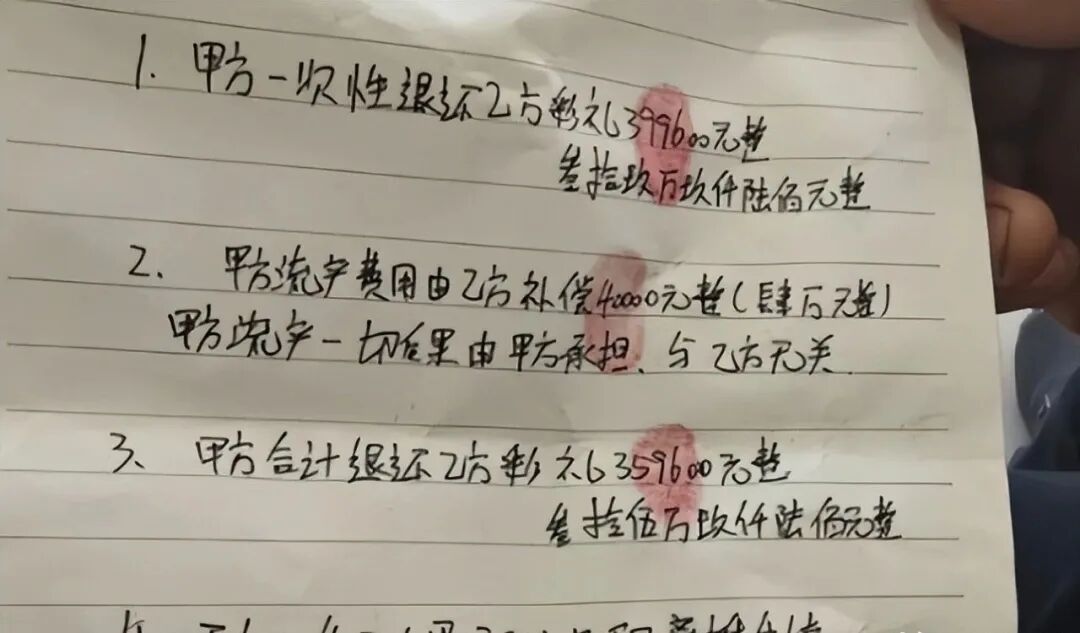 1. 甲方一次性退还乙方彩礼399600元整
叁拾玖万玖仟陆佰元整
2. 甲方流产费用由乙方补偿40000元整(肆万元整)
甲方流产一切后果由甲方承担、与乙方无关
3、甲方合计退还乙方彩礼359600元整
叁拾伍万玖仟陆佰元整